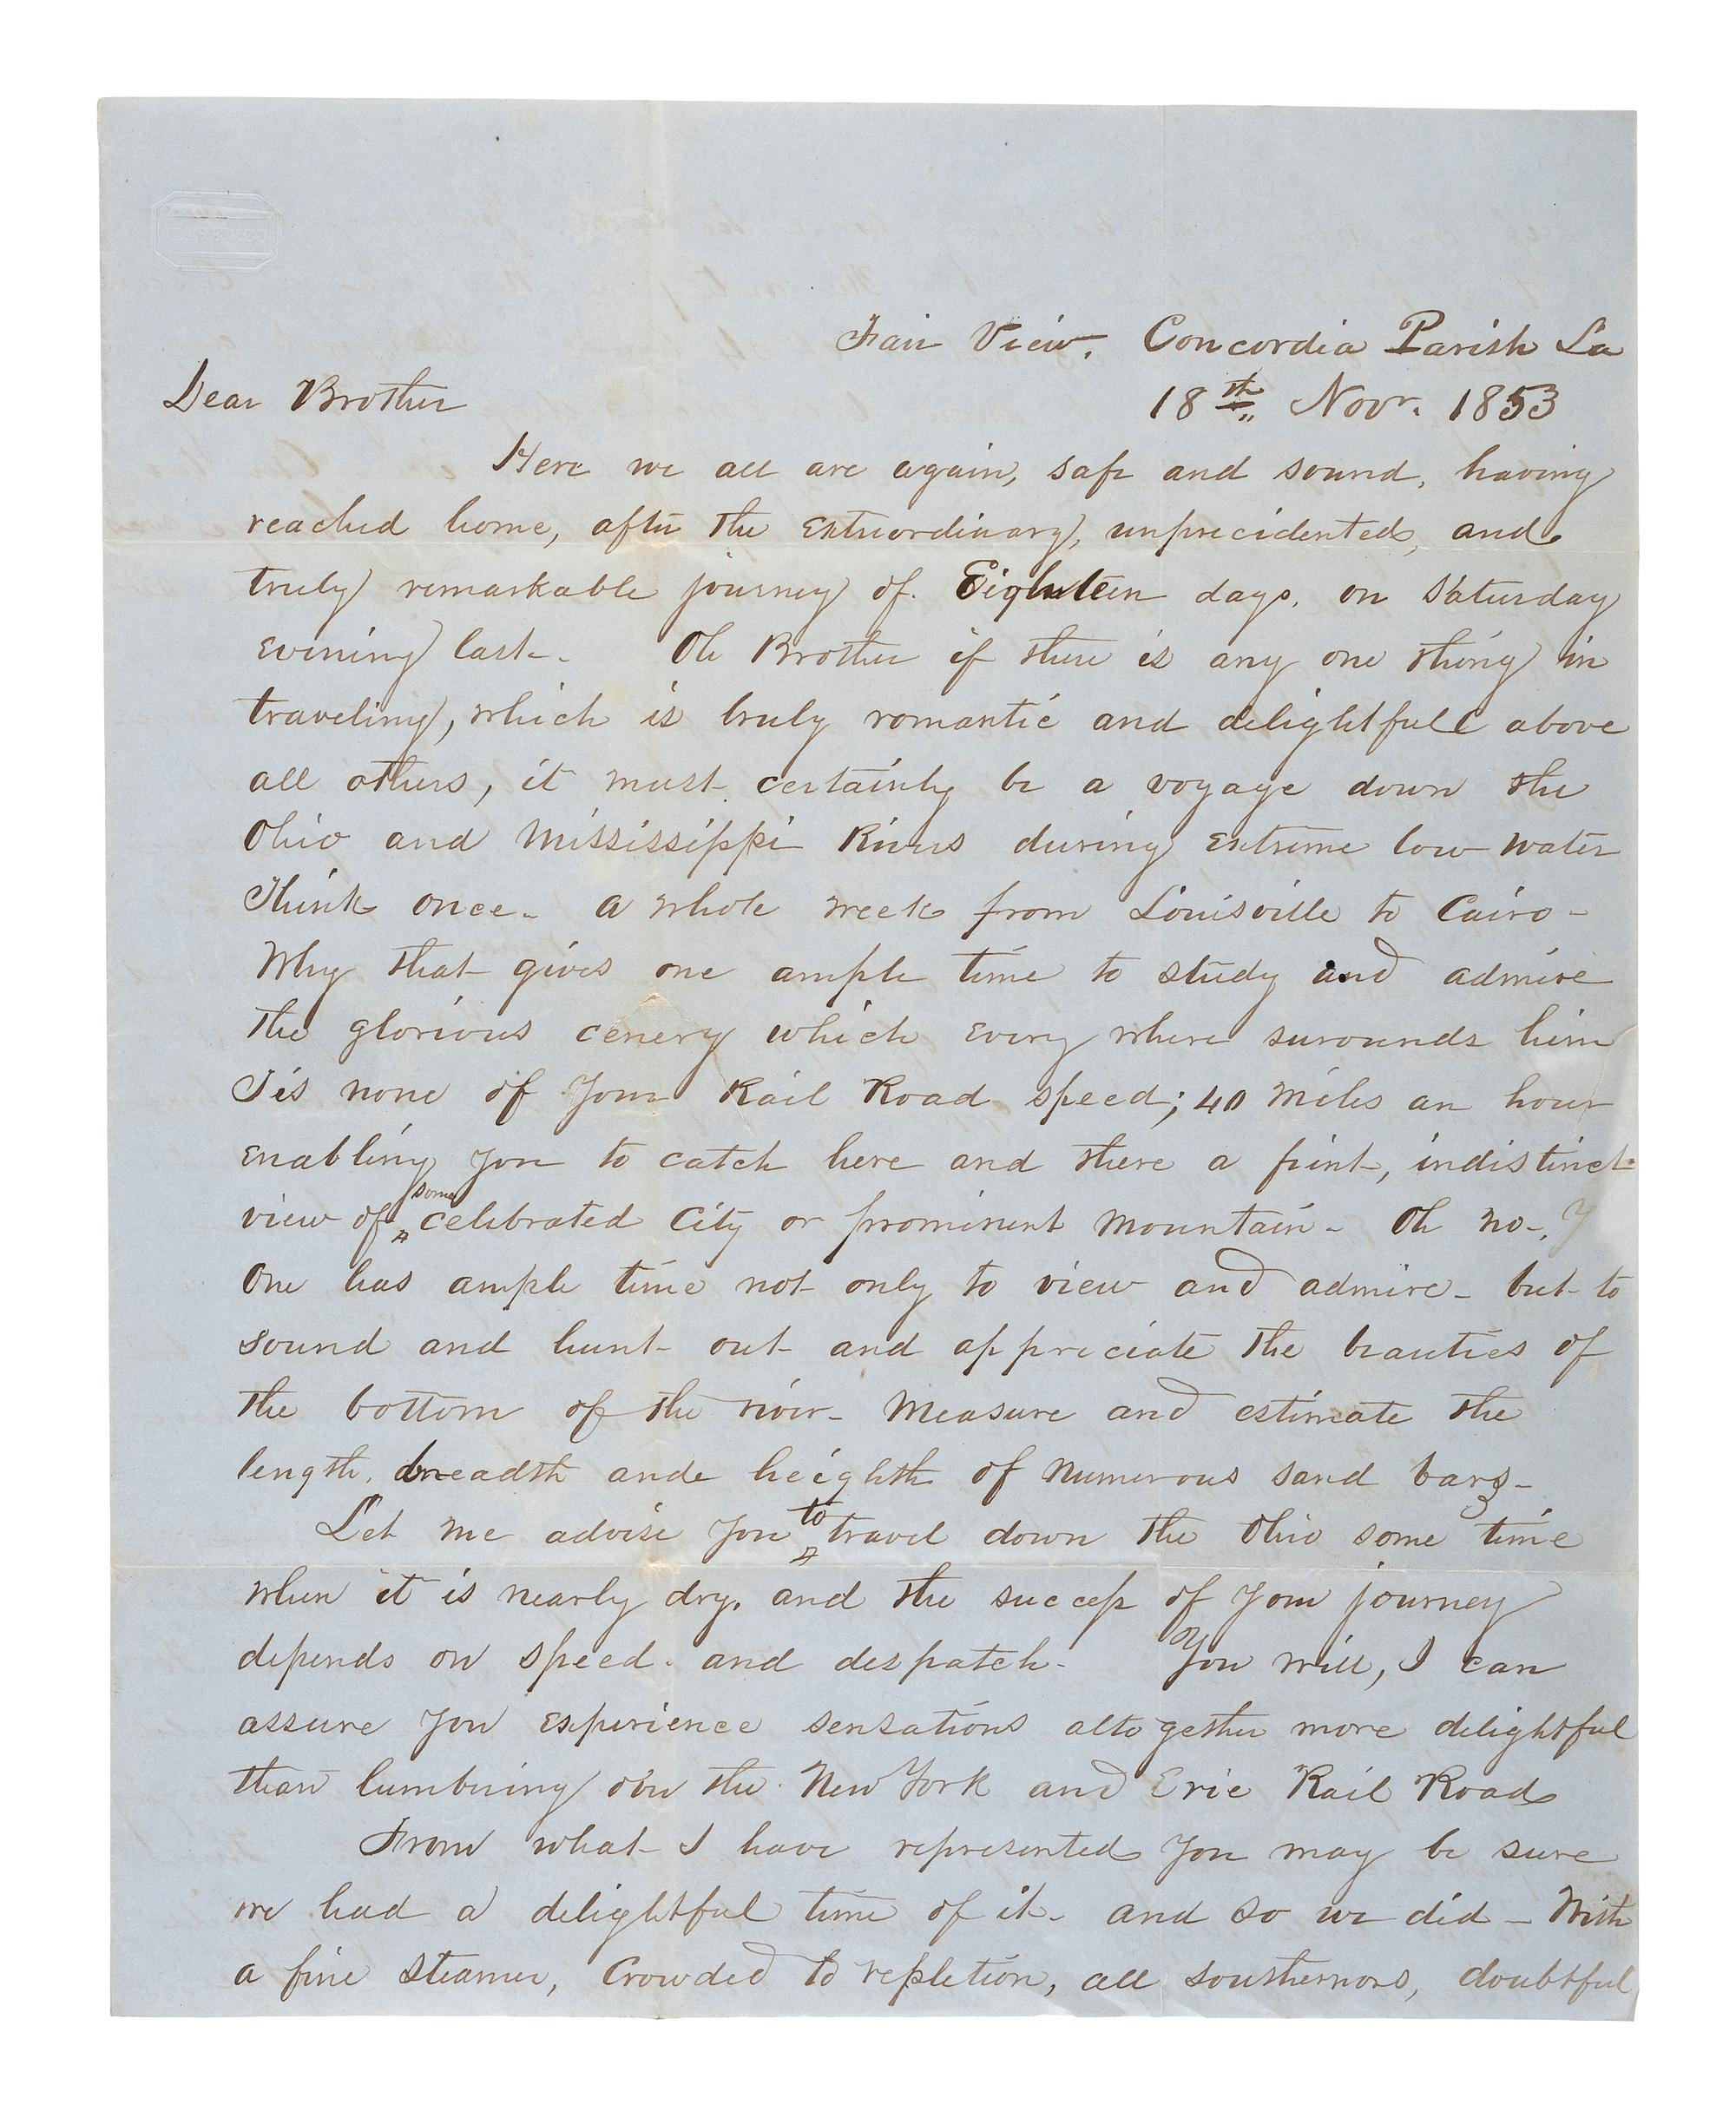 Fair View. Concordia Parish La
Dear Brother 18th Novr. 1853
Here we all are again, safe and sound, having
reached home, after the extraordinary, unprecidented, and
truly remarkable journey of Eighteen days, on Saturday
evening last. Oh Brother if there is any one thing in
traveling, which is truly romantic and delightfull above
all others, it must certainly be a voyage down the
Ohio and Mississippi Rivers during extreme low water
Think once - a whole week from Louisville to Cairo -
Why that gives one ample time to study and admire
the glorious cenery which every where surounds him
Tis none of your Rail Road speed; 40 miles an hour
enabling you to catch here and there a fint, indistinct
view of some celebrated City or prominent mountain - Oh no -
One has ample time not only to view and admire - but to
sound and hunt out and appreciate the beauties of
the bottom of the river - Measure and estimate the
length, breadth ande heighth of numerous sand bars -
Let me advise you to travel down the Ohio some time
when it is nearly dry, and the success of your journey
depends on speed and despatch - You will, I can
assure you experience sensations altogether more delightful
than lumbering over the New York and Erie Rail Road
From what I have represented you may be sure
we had a delightful time of it - and so we did - With
a fine steamer, Crowded to repletion, all southernors, doubtful